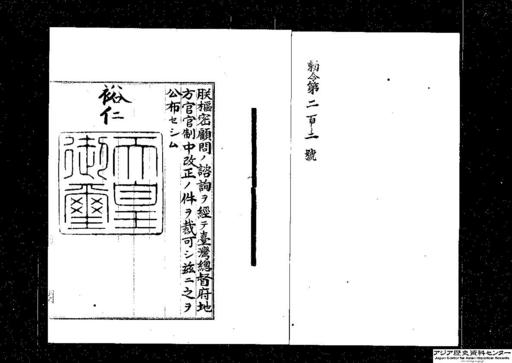 勅令第二百十一號
朕樞密顧問ノ諮詢ヲ經テ臺灣總督府地
方官官制中改正ノ件ヲ裁可シ茲ニ之ヲ
公布セシム
裕仁
天皇
御璽
アジア歴史資料センター
Japan Center for Asian Historical Records